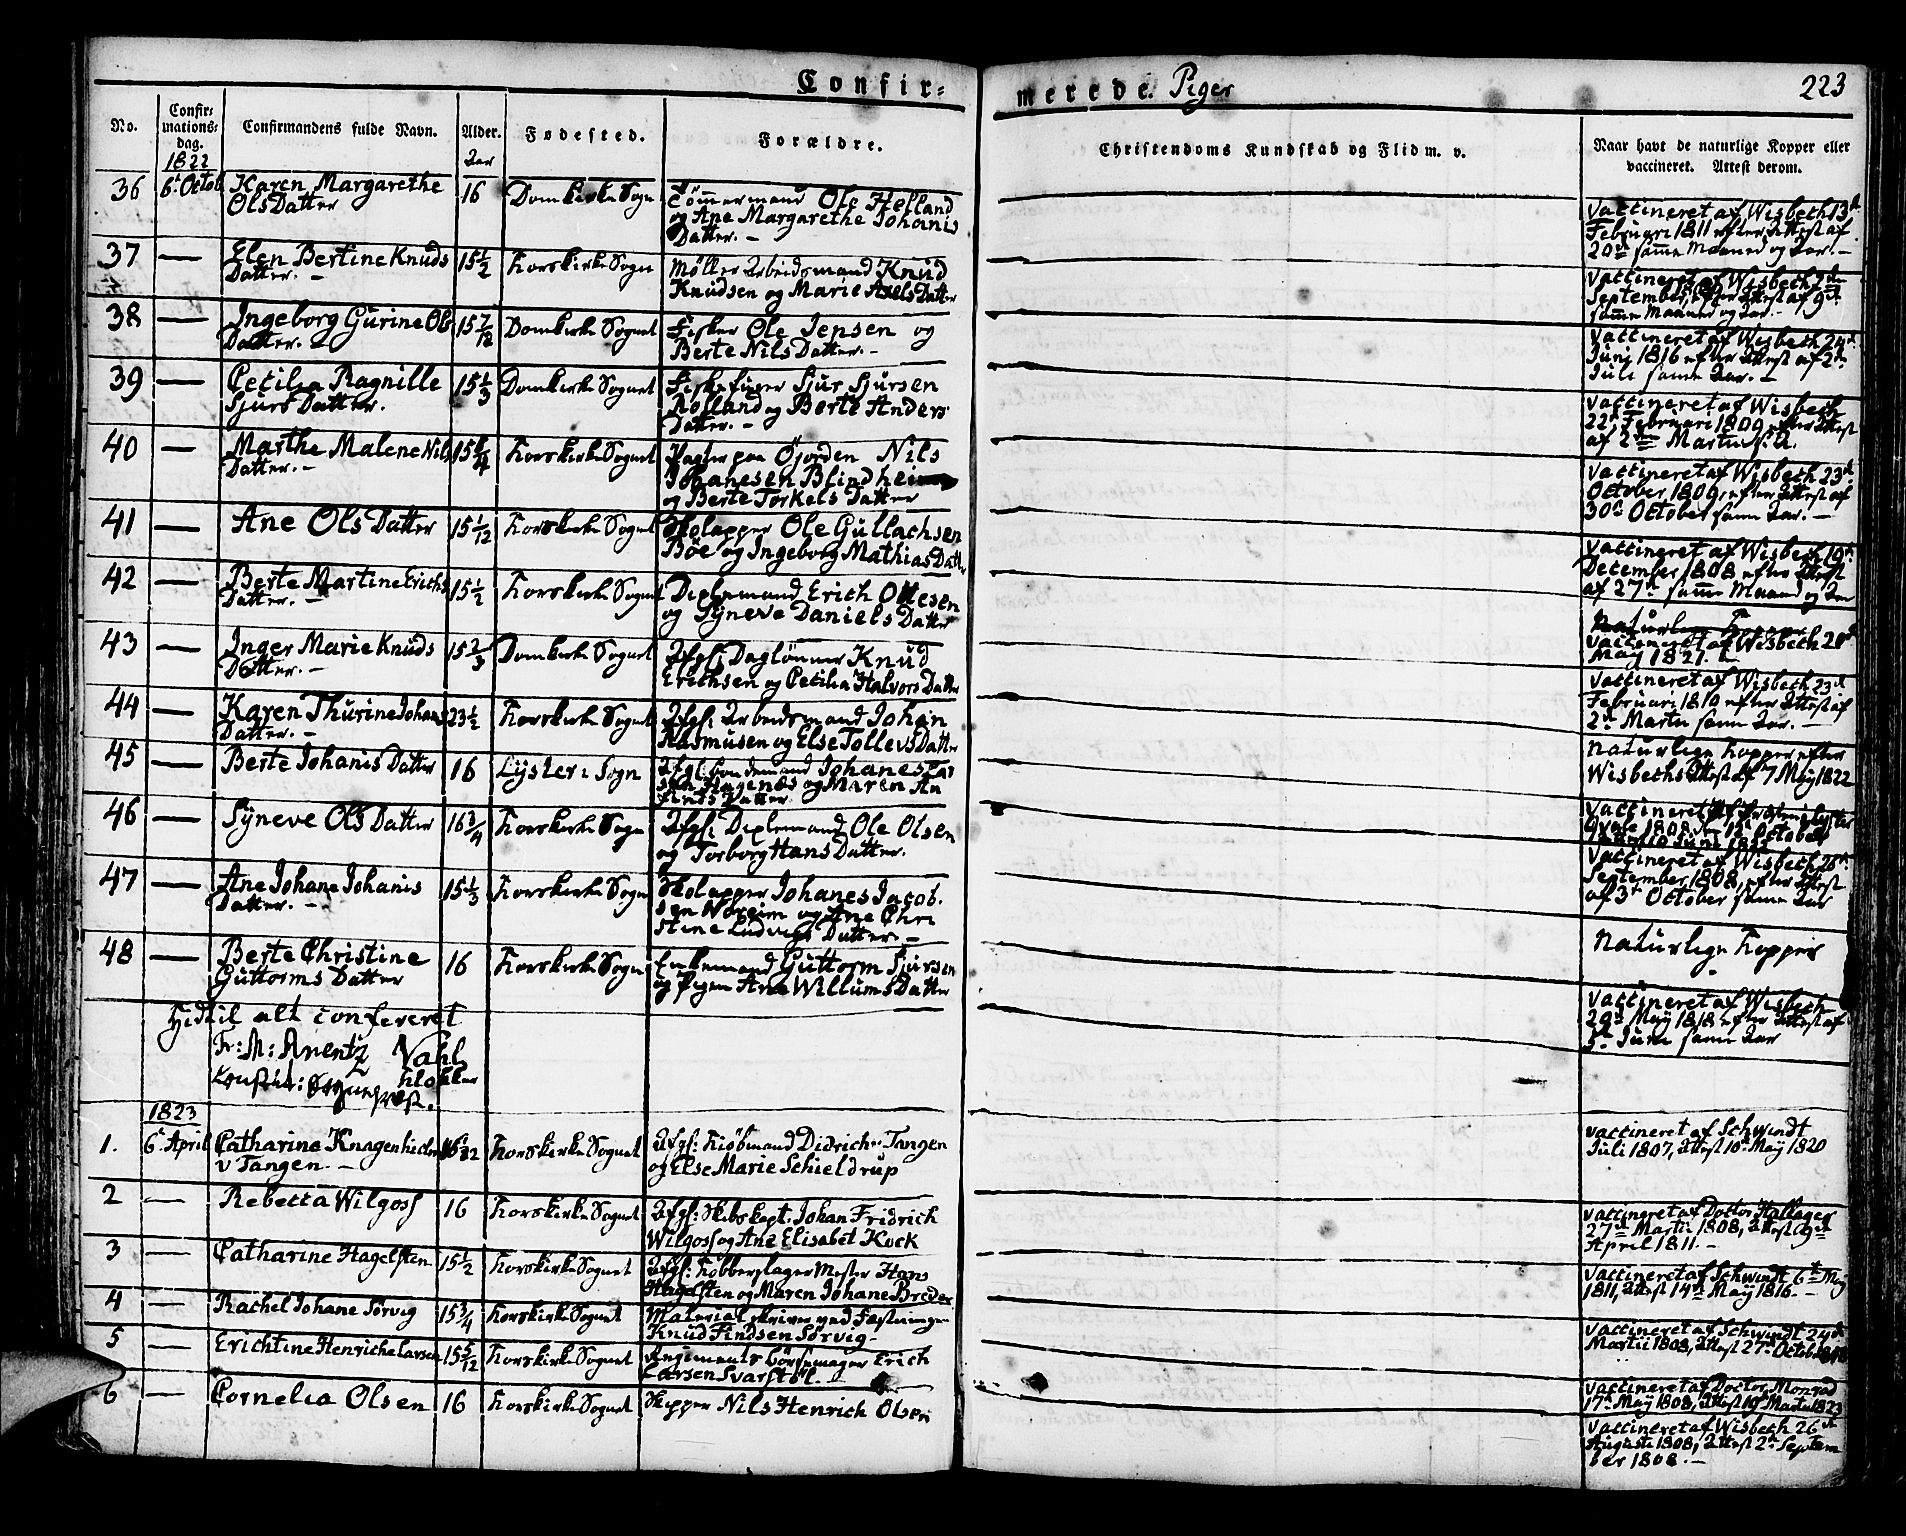 Confir=
merede. Piger
223
No.
Confir-
mations-
dag.
Confirmandens fulde Navn.
Alder.
Fødested.
Forældre.
Christendoms Kundskab og Flid m. v.
Naar havt de naturlige Kopper eller
vaccineret. Attest derom.
1822
Aar
36 6t Octob Karen Margarethe 16 Domkirke Sogn Tømmermand Ole Helland
Ols Datter og Ane Margarethe Johanis
Datter. —
Vaccineret af Wisbech 13d
Februari 1811 efter Attest af
20d samme Maaned og Aar. —
37 — Elen Bertine Knuds 15 1/2 Korskirke Sogn Møller Arbeidsmand Knud
Datter. — Knudsen og Marie Axels Datter
Vaccineret af Wisbech
September, efter Attest af 9d
samme Maaned og Aar. —
38 — Ingeborg Gurine Ols 15 7/12 Domkirke Sognet Fisker Ole Jensen og
Datter. — Berte Nils Datter. —
Vaccineret af Wisbech 24d
Juni 1816 efter Attest af 2d
Juli samme Aar. —
39 — Cecilia Ragnille 15 1/3 Domkirke Sognet Fiskefører Sjur Sjursen
Sjurs Datter. Rolland og Berte Anders
Datter. —
Vaccineret af Wisbech
22d Februari 1809, efter Attest
af 2den Martii s. A.
40 — Marthe Malene Nils 15 Korskirke Sognet Pagter paa Øjorden Nils
Datter. — Johanesen Blindheim
og Berte Torkels Datter
Vaccineret af Wisbech 23d
October 1809, efter Attest af
30d October samme Aar. —
41 — Ane Ols Datter 15 1/12 Korskirke Sognet Skolapper Ole Gullachsen
Böe og Ingeborg Mathias Datter
Vaccineret af Wisbech 19d
December 1808 efter Attest
af 27d samme Maaned og Aar
42 — Berte Martine Erichs 15 1/2 Korskirke Sognet Peplemand Erich Ottesen
Datter. — og Syneve Daniels Datter
Naturlige Kopper
Vaccineret af Wisbech 20d
May 1821. —
43 — Inger Marie Knuds 15 2/3 Domkirke Sognet Afgl: Daglønner Knud
Datter. — Erichsen og Cecilia Halvors Datter
Vaccineret af Wisbech 23d
Februari 1810 efter Attest af
2d Martii samme Aar. —
44 — Karen Thurine Johans 23 1/2 Korskirke Sognet Afgl: Arbeidsmand Johan
Datter. — Rasmusen og Else Tollevs Datter
Naturlige Kopper efter
Wisbechs Attest af 7 May 1822
45 — Berte Johanis Datter 16 Lyster: Sogn Afgl: Bondemand Johanes
Hagenæs og Maren An
finds Datter
Vaccineret af
1808 den 12 October
46 — Syneve Ols Datter 16 3/4 Korskirke Sogn Afgl: Peplemand Ole Olsen
og Torborg Hans Datter.
Vaccineret af Wisbech 26d
September 1808, efter Attest
af 3d October samme Aar
47 — Ane Johane Johanis 15 1/3 Korskirke Sognet Skolapper Johanes Jacob.
Datter. — sen Noreim og Ane Chri
stine Ludvigs Datter. —
Naturlige Kopper
48 — Berte Christine 16 Korskirke Sogn Enkemand Guttorm Sjursen
Guttorms Datter og Pigen Ane Willums Datter
Vaccineret af Wisbech
29d May 1818 efter Attest af
5d Juni samme Aar
Hidtil alt confereret
Fr: M: Arentz Vahl
Klokker
1823
1. 6t April Catharina Knagenhielm 16 Korskirke Sognet Afgl: Kiøbmand Didrich v Tangen
v Tangen. — og Else Marie Schieldrup
vaccineret af Schwindt
Juli 1807, Attest 10d May 1820
2 — Rebecca Wilgoss 16 Korskirke Sognet Afgl: Skibskapt. Johan Fridrich
Wilgoss og Ane Elisabet Kock
vaccineret af Doctor Hallager
27d Martii 1808, Attest 9d
April 1811. —
3 — Catharine Hagelsten 15 1/2 Korskirke Sognet Afgl: Kobberslager Mester Hans
Hagelsten og Maren Johane Breder
Vaccineret af Schwindt 6d May
1811, Attest 14d May 1816. —
4 — Rachel Johane Sørvig 15 3/4 Korskirke Sognet Materialskriver ved Fæstningen
Knud Findsen Sørvig —
Vaccineret af Schwindt 24d
Martii 1808, Attest 27d October
5 — Erichtine Henriche Larsen 15 5/12 Korskirke Sognet Regiments Börsemager Erich
Larsen Svarstöl. —
Vaccineret af Doctor Monrad
17d May 1808, Attest 19d Martii 1823
6 — Cornelia Olsen 16 Korskirke Sognet Skipper Nils Henrich Olsen
Vaccineret af Wisbech 26d
Augusti 1808, Attest 2d Septem
ber 1808. —